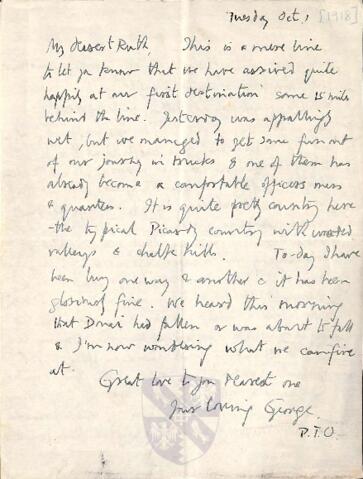 Tuesday Oct 1 [1918]
My dearest Ruth, This is a mere line
to let you know that we have arrived quite
happily at our first destination some 15 miles
behind the line. Yesterday was appallingly
wet, but we managed to get some fun out
of our journey in trucks & one of them has
already become a comfortable officers mess
& quarters. It is quite pretty country here
- the typical Picardy country with wooded
valleys & chalk hills. To-day I have
been busy one way & another & it has been
gloriously fine. We heard this morning
that Douai had fallen or was about to fall
& I'm now wondering what we can fire
at.
Great love to you dearest one
Your loving George.
P.T.O.